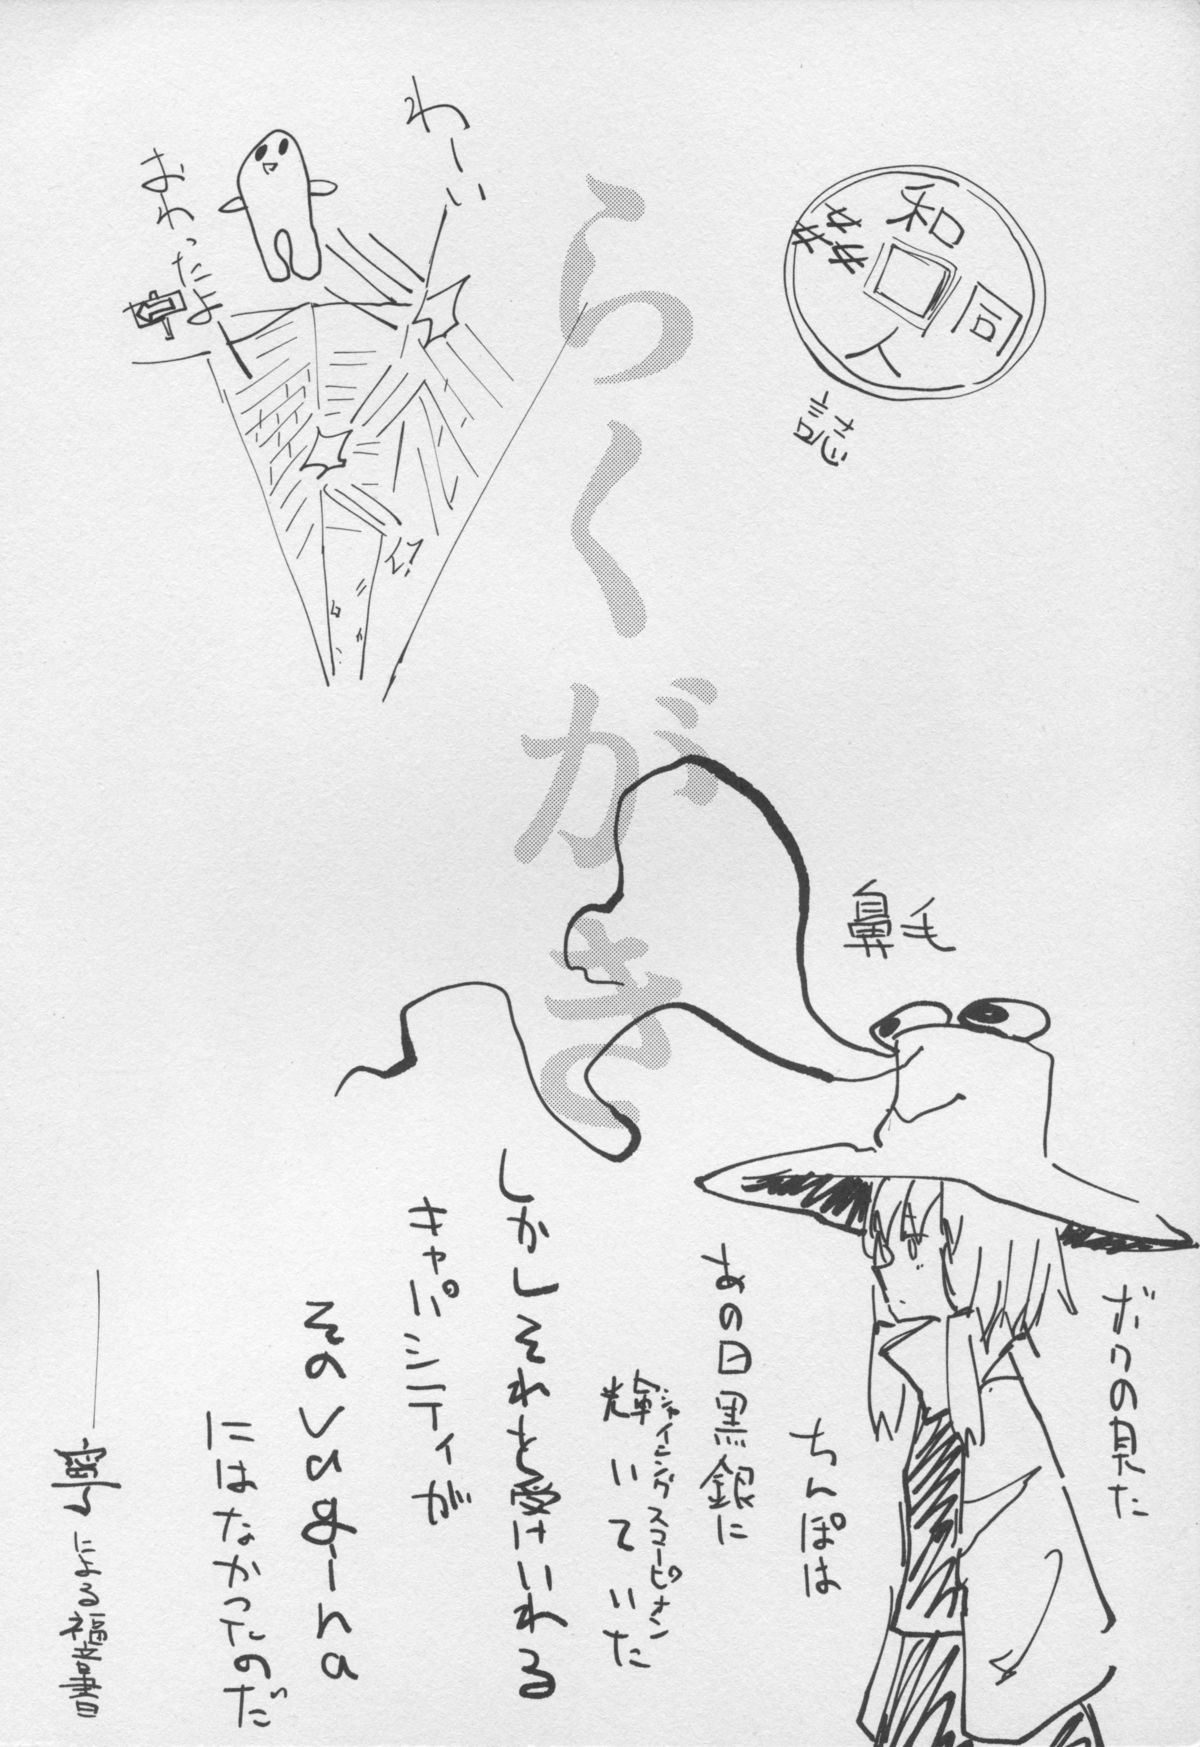 和
同
人
誌
わーい
おわったよ
らくがき
鼻毛
ボクの見た
ちんぽは
あの日黒銀に
輝いていた
シャイニングスコーピオン
しかしそれを受けいれる
キャパシティが
そのvagina
にはなかったのだ
による福音書